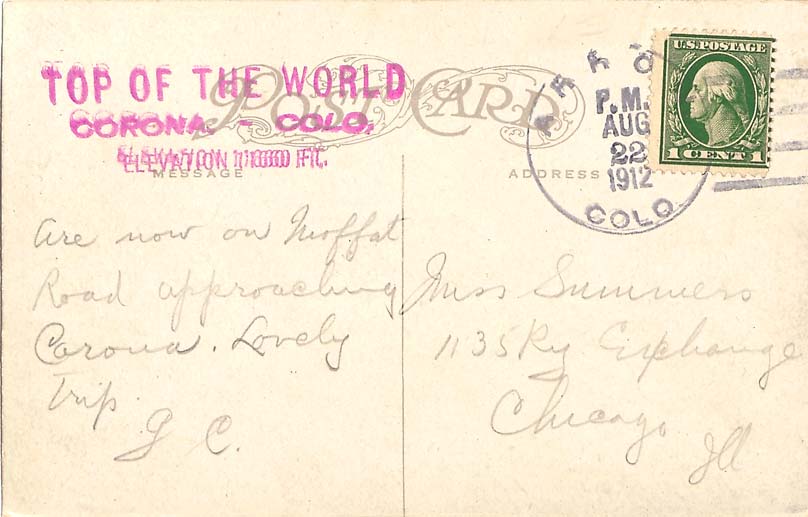 TOP OF THE WORLD
CORONA - COLO.
ELEVATION FT.
POST CARD
MESSAGE
ADDRESS
U.S. POSTAGE
1 CENT 1
P.M.
AUG
22
1912
COLO.
Are now on Moffat
Road approaching
Corona. Lovely
Trip.
G C.
Miss Summers
1135 Ry Exchange
Chicago
Ill